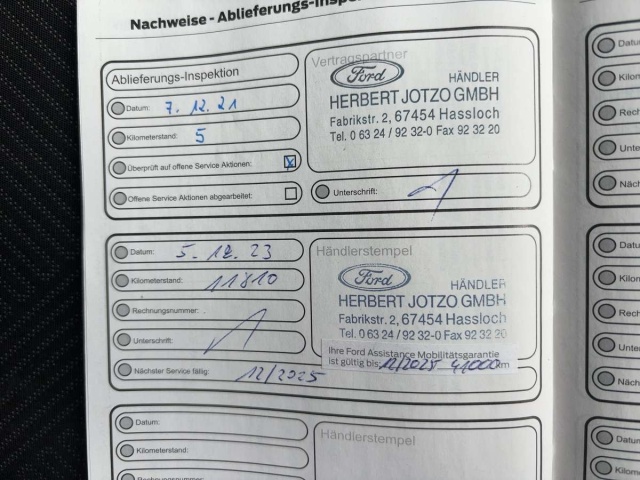 Nachweise - Ablieferungs-Inspe
Ablieferungs-Inspektion
Datum: 7.12.21
Kilometerstand: 5
Überprüft auf offene Service Aktionen: X
Offene Service Aktionen abgearbeitet:
Vertragspartner
Ford
HÄNDLER
HERBERT JOTZO GMBH
Fabrikstr. 2, 67454 Hassloch
Tel. 0 63 24 / 92 32-0 Fax 92 32 20
Unterschrift:
Datum: 5.12.23
Kilometerstand: 11810
Rechnungsnummer:
Unterschrift:
Nächster Service fällig: 12/2025
Händlerstempel
Ford
HÄNDLER
HERBERT JOTZO GMBH
Fabrikstr. 2, 67454 Hassloch
Tel. 0 63 24 / 92 32-0 Fax 92 32 20
Ihre Ford Assistance Mobilitätsgarantie
ist gültig bis 12/2025 41000 km
Datum:
Kilometerstand:
Rechnungsnummer:
Händlerstempel
Datu
Kilom
Rech
Unte
Näch
Datu
Kilom
Rech
Unte
Näch
Datu
Kilom